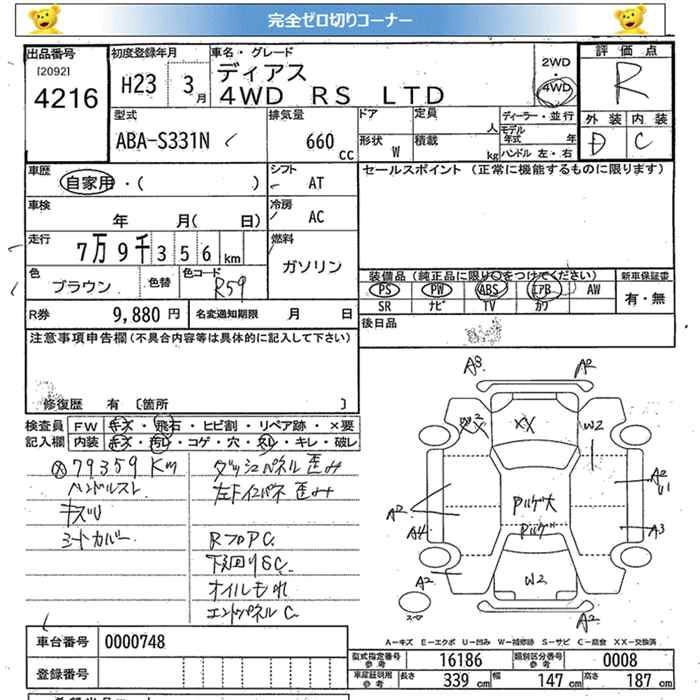 完全ゼロ切りコーナー
出品番号 初度登録年月 車名・グレード 評価点
[2092] H23 3月 ディアス 2WD R
4216 4WD RS LTD 4WD
型式 排気量 ドア 定員 人 ディーラー・並行 外装 内装
ABA-S331N 660 cc 形状 W 積載 kg モデル年式 年 D C
ハンドル 左・右
車歴 シフト セールスポイント (正常に機能するものに限ります)
自家用・( ) AT
車検 冷房
年 月( 日) AC
走行 燃料
7万9千356 km ガソリン
色 色替 色コード 装備品 (純正品に限り○をつけてください) 新車保証書
ブラウン R59 PS PW ABS エアB AW 有・無
SR ナビ TV カワ
R券 9,880 円 名変通知期限 月 日 後日品
注意事項申告欄 (不具合内容等は具体的に記入して下さい)
修復歴 有 〔箇所 〕
検査員 FW キズ・飛石・ヒビ割・リペア跡・×要
記入欄 内装 キズ・汚レ・コゲ・穴・スレ・キレ・破レ
79359 Km ダッシュパネル 歪み
ハンドルスレ 左Fインパネ 歪み
キズU
シートカバー RフロアC.
下廻りSC.
オイルもれ
エンドパネルC
A3 A2
W2 XX W2
A2 U1
Pルゲ大
A2 Pルゲ
A4 A3
A2 W2
スペア A2
A-キズ E-エクボ U-凹み W-補修跡 S-サビ C-腐食 XX-交換済
車台番号 0000748
型式指定番号 参考 16186 類別区分番号 参考 0008
登録番号 車庫証明用 参考 長さ 339 cm 幅 147 cm 高さ 187 cm